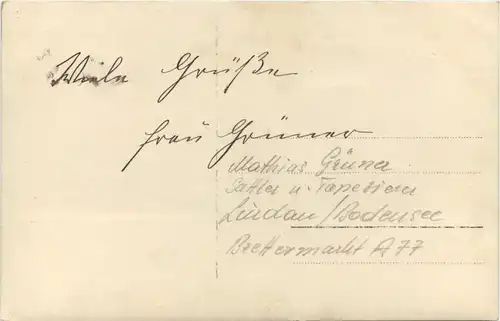 Viele Grüße
Frau Grüner
Mathias Grüner
Sattler u. Tapezierer
Lindau/Bodensee
Brettermarkt A77